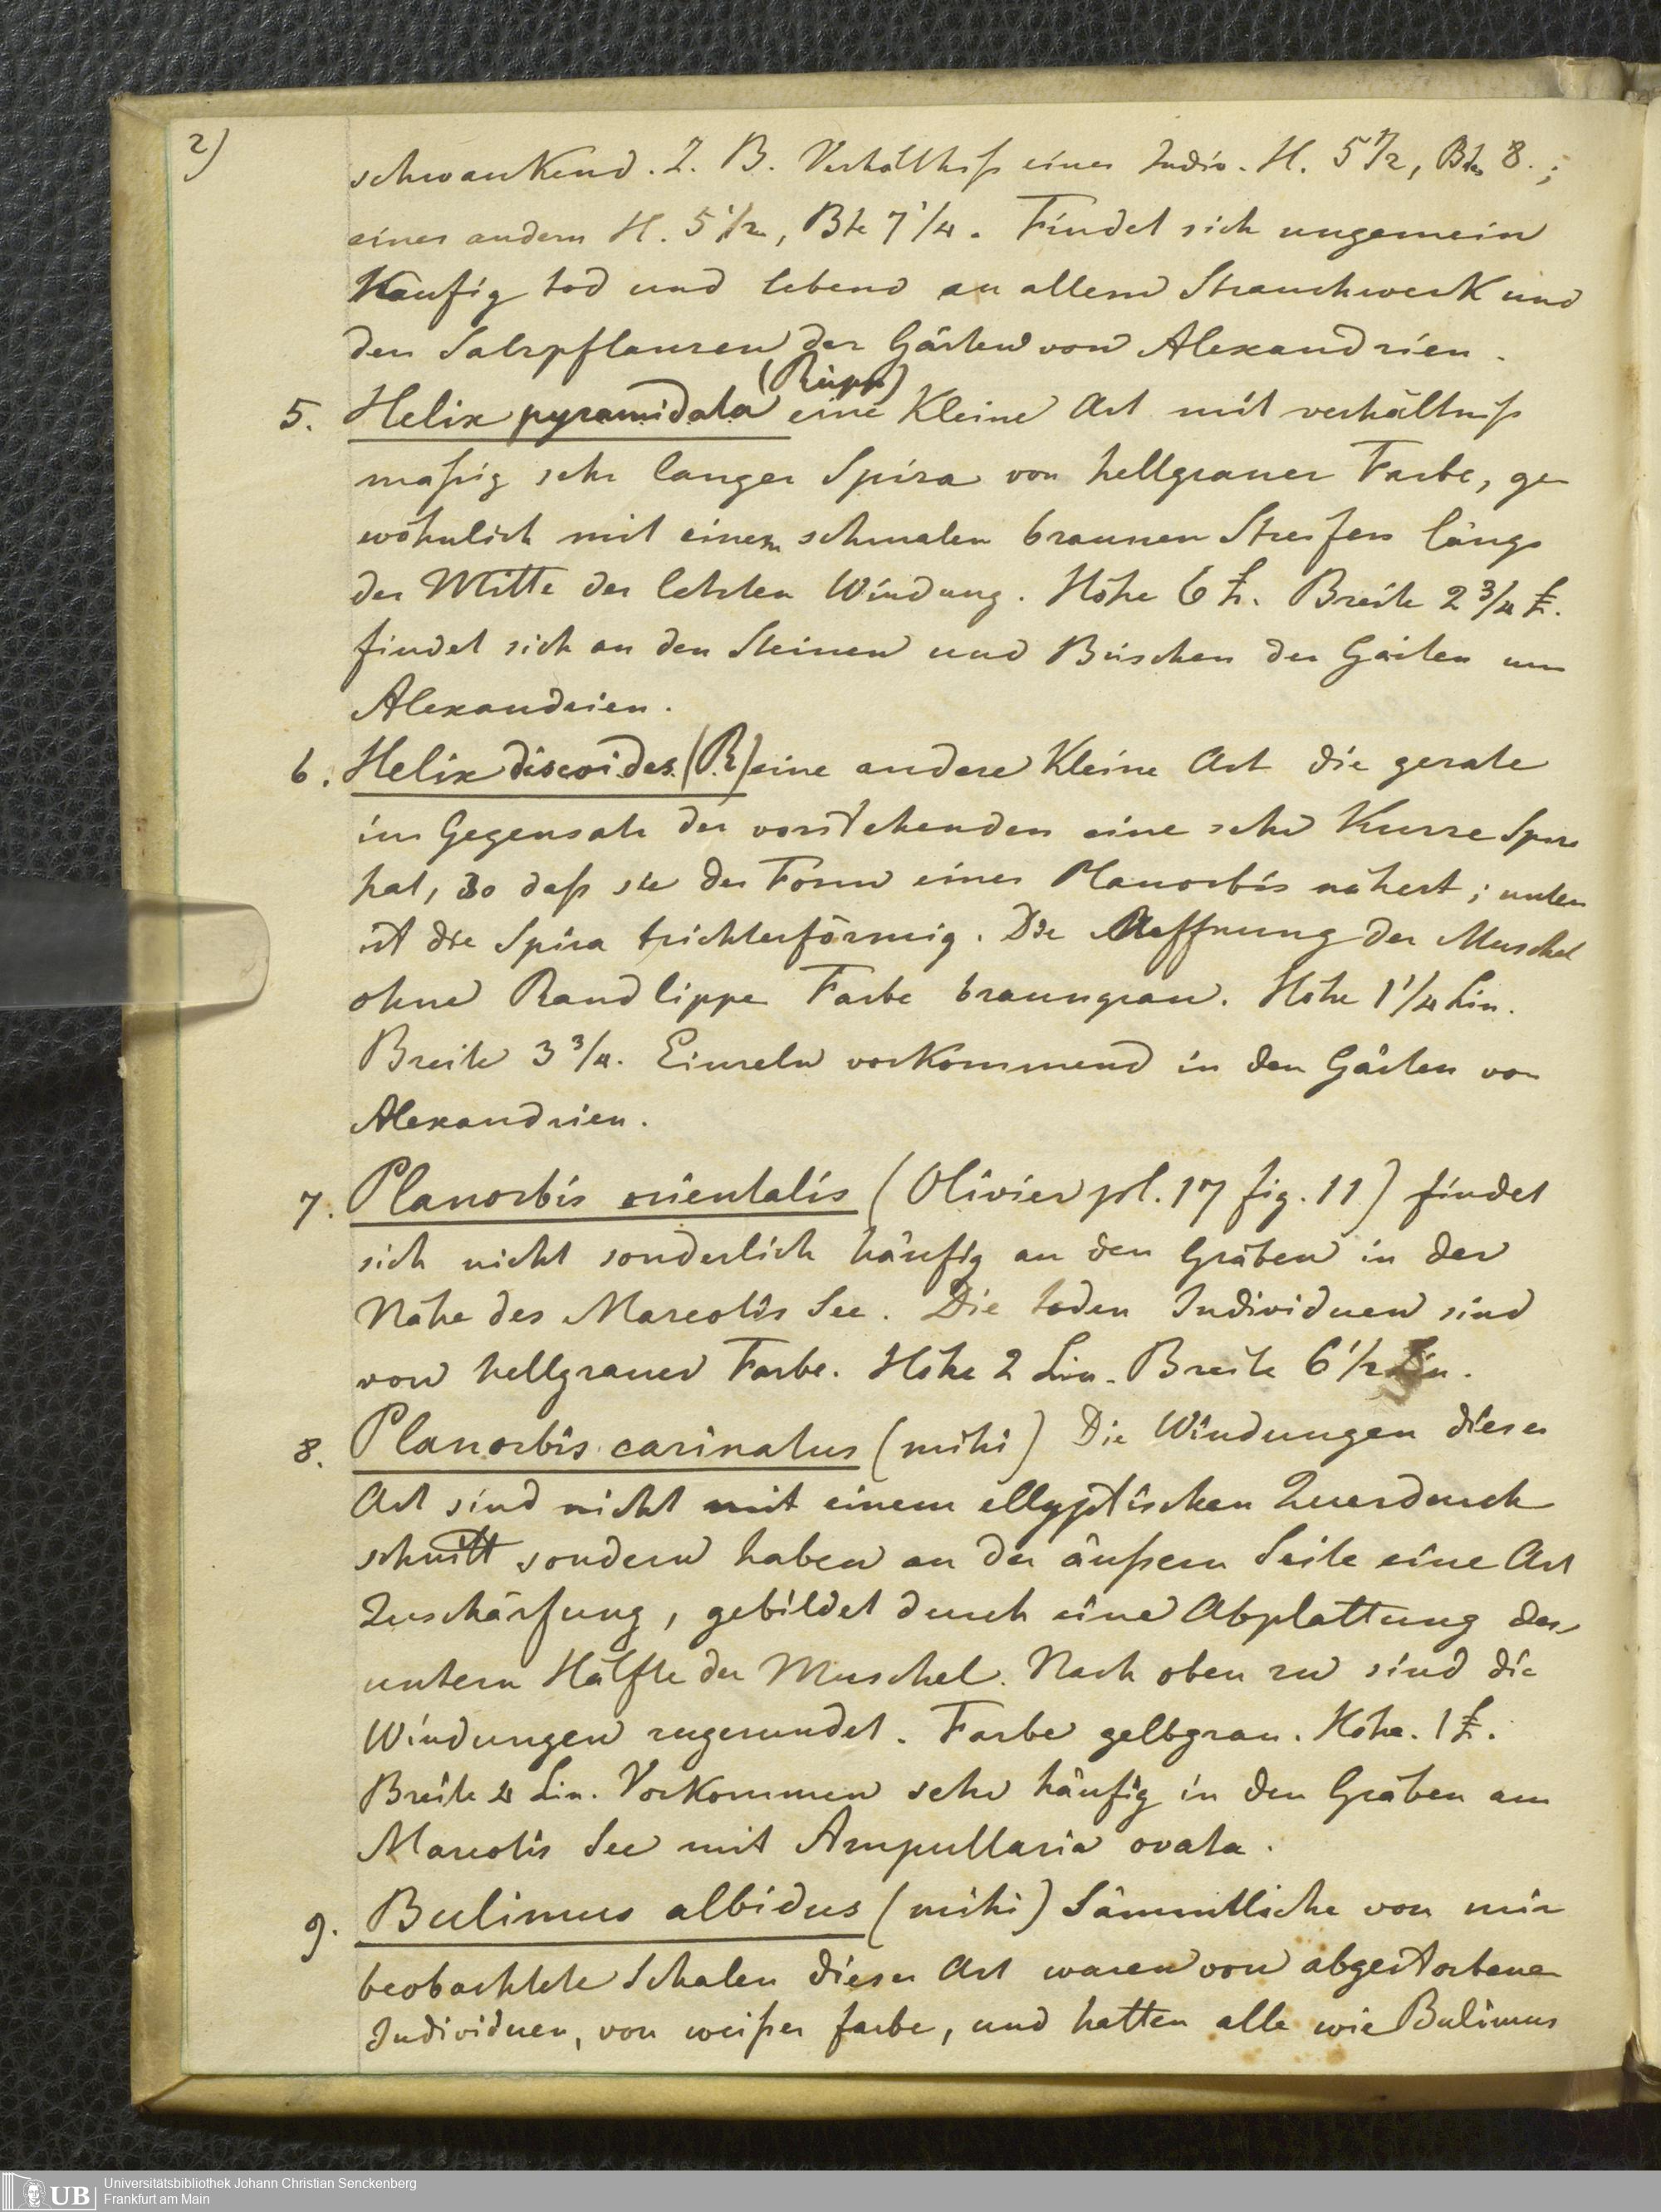 2)
schwankend. Z. B. Verhältniß eines Indiv. H. 5 1/2, Bte 8.;
eines andern H. 5 1/2, Bte 7 1/4. Findet sich ungemein
häufig tod und lebend an allem Strauchwerk und
den Salzpflanzen der Gärten von Alexandrien.
(Rüpp)
5. Helix pyramidata eine kleine Art mit verhältniß
maßig sehr langer Spira von hellgrauer Farbe, ge
wöhnlich mit einem schmalen braunen Streifen längs
der Mitte der letzten Windung. Höhe 6 L. Breite 2 3/4 L.
findet sich an den Steinen und Büschen der Gärten um
Alexandrien.
6. Helix discoides (R) eine andere kleine Art die gerate
im Gegensatz der vorstehenden eine sehr kurze Spira
hat, so daß sie der Form eines Planorbis nähert; unten
ist die Spira trichterförmig. Die Oeffnung der Muschel
ohne Randlippe Farbe braungrau. Höhe 1 1/4 Lin.
Breite 3 3/4. Einzeln vorkommend in den Gärten von
Alexandrien.
7. Planorbis orientalis (Olivier pl. 17 fig. 11) findet
sich nicht sonderlich häufig an den Gräben in der
Nähe des Mareotis See. Die toden Individuen sind
von hellgrauer Farbe. Höhe 2 Lin. Breite 6 1/2 Lin.
8. Planorbis carinatus (mihi) Die Windungen dieser
Art sind nicht mit einem ellyptischen Querdurch
schnitt sondern haben an der äußern Seite eine Art
Zuschärfung, gebildet durch eine Abplattung der
untern Hälfte der Muschel. Nach oben zu sind die
Windungen zugerundet. Farbe gelbgrau. Höhe. 1 L.
Breite 4 Lin. Vorkommen sehr häufig in den Gräben am
Mareotis See mit Ampullaria ovata.
9. Bulimus albidus (mihi) Sämmtliche von mir
beobachtete Schalen dieser Art waren von abgestorbenen
Individuen, von weißer farbe, und hatten alle wie Bulimus
UB Universitätsbibliothek Johann Christian Senckenberg
Frankfurt am Main